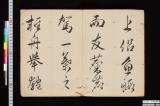 上侶魚蝦
而友麋鹿
駕一葉之
扁舟舉